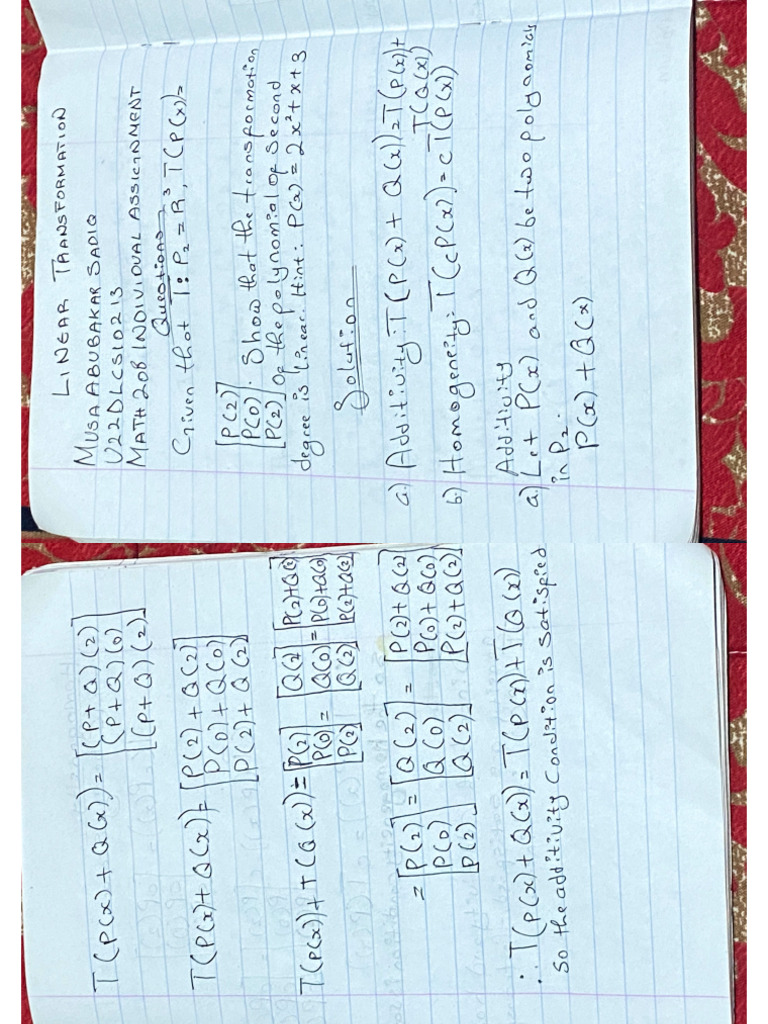 LINEAR TRANSFORMATION
MUSA ABUBAKAR SADIQ
U22DLCS10213
MATH 208 INDIVIDUAL ASSIGNMENT
Questions
Given that T: P₂ = R³, T(P(x) =
[P(2)
P(0)
P(2)]. Show that the transformation
of the polynomial of second
degree is linear. Hint: P(x) = 2x² + x + 3
Solution
a.) Additivity: T(P(x) + Q(x)) = T(P(x) +
T(Q(x))
b.) Homogeneity: T(cP(x)) = cT(P(x))
Additivity
a.) Let P(x) and Q(x) be two polynomials
in P₂.
P(x) + Q(x)
T(P(x) + Q(x)) = [(P+Q)(2)
(P+Q)(0)
(P+Q)(2)]
T(P(x) + Q(x)) = [P(2) + Q(2)
P(0) + Q(0)
P(2) + Q(2)]
T(P(x)) + T(Q(x)) = [P(2) P(0) P(2)] = [Q(2) Q(0) Q(2)] = [P(2)+Q(2) P(0)+Q(0) P(2)+Q(2)]
= [P(2) P(0) P(2)] = [Q(2) Q(0) Q(2)] = [P(2)+Q(2) P(0)+Q(0) P(2)+Q(2)]
∴ T(P(x) + Q(x)) = T(P(x) + T(Q(x)
So the additivity Condition is satisfied